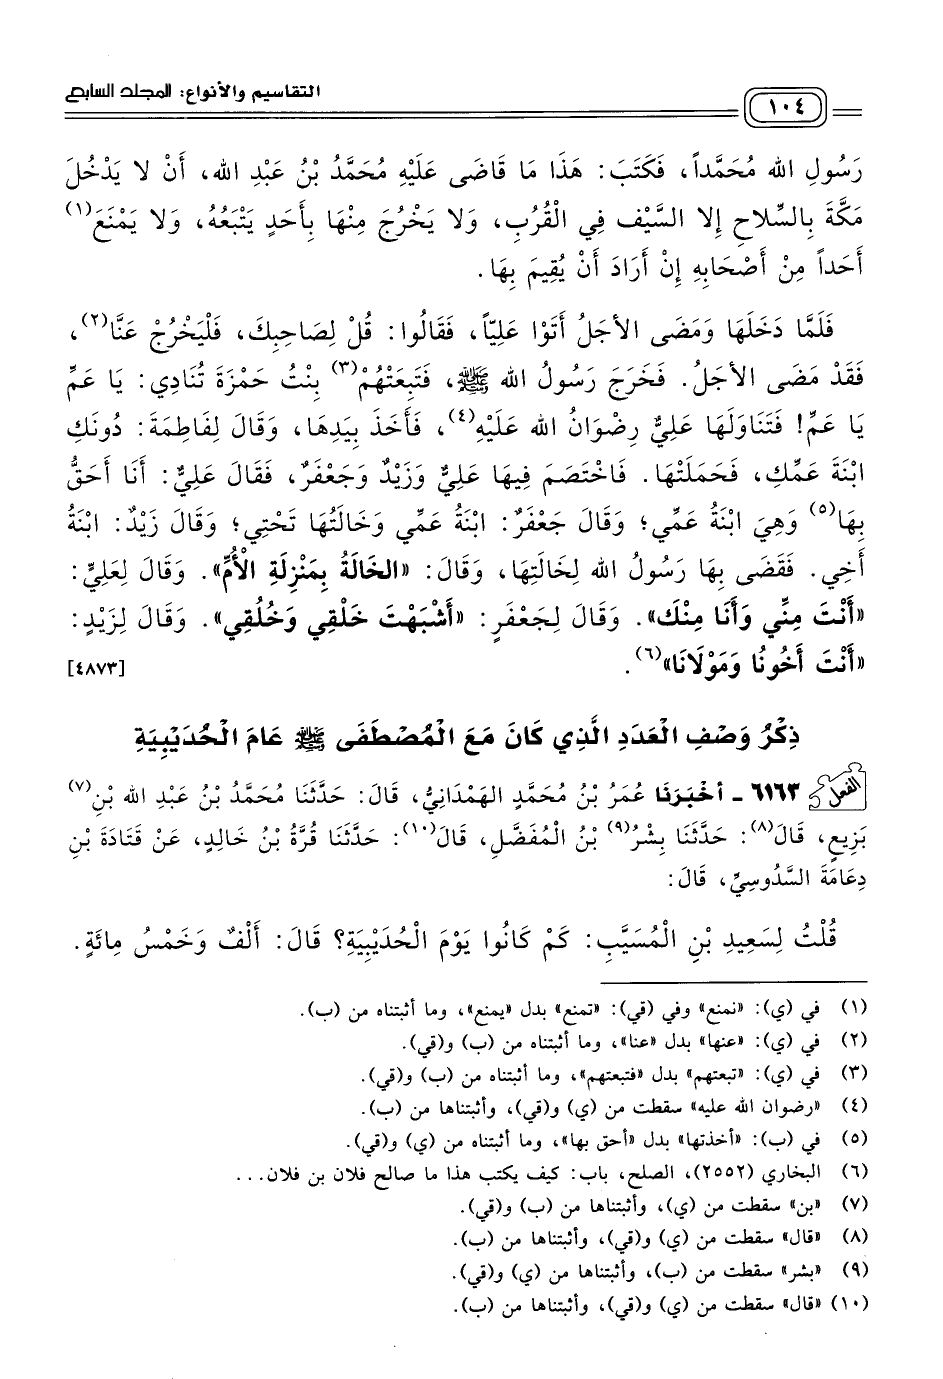 ١٠٤ التقاسيم والأنواع: المجلد السابع
رَسُولِ الله مُحَمَّداً، فَكَتَبَ: هَذَا مَا قَاضَى عَلَيْهِ مُحَمَّدُ بْنُ عَبْدِ الله، أَنْ لا يَدْخُلَ
مَكَّةَ بِالسِّلاحِ إِلا السَّيْفَ فِي الْقُرُبِ، وَلا يَخْرُجَ مِنْهَا بِأَحَدٍ يَتْبَعُهُ، وَلا يَمْنَعَ(١)
أَحَداً مِنْ أَصْحَابِهِ إِنْ أَرَادَ أَنْ يُقِيمَ بِهَا.
فَلَمَّا دَخَلَهَا وَمَضَى الأَجَلُ أَتَوْا عَلِيّاً، فَقَالُوا: قُلْ لِصَاحِبِكَ، فَلْيَخْرُجْ عَنَّا(٢)،
فَقَدْ مَضَى الأَجَلُ. فَخَرَجَ رَسُولُ الله ﷺ، فَتَبِعَتْهُمْ(٣) بِنْتُ حَمْزَةَ تُنَادِي: يَا عَمِّ
يَا عَمِّ! فَتَنَاوَلَهَا عَلِيٌّ رِضْوَانُ الله عَلَيْهِ(٤)، فَأَخَذَ بِيَدِهَا، وَقَالَ لِفَاطِمَةَ: دُونَكِ
ابْنَةَ عَمِّكِ، فَحَمَلَتْهَا. فَاخْتَصَمَ فِيهَا عَلِيٌّ وَزَيْدٌ وَجَعْفَرٌ، فَقَالَ عَلِيٌّ: أَنَا أَحَقُّ
بِهَا(٥) وَهِيَ ابْنَةُ عَمِّي؛ وَقَالَ جَعْفَرٌ: ابْنَةُ عَمِّي وَخَالَتُهَا تَحْتِي؛ وَقَالَ زَيْدٌ: ابْنَةُ
أَخِي. فَقَضَى بِهَا رَسُولُ الله لِخَالَتِهَا، وَقَالَ: «الخَالَةُ بِمَنْزِلَةِ الأُمِّ». وَقَالَ لِعَلِيٍّ:
«أَنْتَ مِنِّي وَأَنَا مِنْكَ». وَقَالَ لِجَعْفَرٍ: «أَشْبَهْتَ خَلْقِي وَخُلُقِي». وَقَالَ لِزَيْدٍ:
«أَنْتَ أَخُونَا وَمَوْلَانَا»(٦). [٤٨٧٣]
ذِكْرُ وَصْفِ الْعَدَدِ الَّذِي كَانَ مَعَ الْمُصْطَفَى ﷺ عَامَ الْحُدَيْبِيَةِ
الفعل ٦١٦٣ - أَخْبَرَنَا عُمَرُ بْنُ مُحَمَّدٍ الهَمْدَانِيُّ، قَالَ: حَدَّثَنَا مُحَمَّدُ بْنُ عَبْدِ الله بْنِ(٧)
بَزِيعٍ، قَالَ(٨): حَدَّثَنَا بِشْرُ(٩) بْنُ الْمُفَضَّلِ، قَالَ(١٠): حَدَّثَنَا قُرَّةُ بْنُ خَالِدٍ، عَنْ قَتَادَةَ بْنِ
دِعَامَةَ السَّدُوسِيِّ، قَالَ:
قُلْتُ لِسَعِيدِ بْنِ الْمُسَيَّبِ: كَمْ كَانُوا يَوْمَ الْحُدَيْبِيَةِ؟ قَالَ: أَلْفٌ وَخَمْسُ مِائَةٍ.
(١) في (ي): «نمنع» وفي (قي): «تمنع» بدل «يمنع»، وما أثبتناه من (ب).
(٢) في (ي): «عنها» بدل «عنا»، وما أثبتناه من (ب) و(قي).
(٣) في (ي): «تبعتهم» بدل «فتبعتهم»، وما أثبتناه من (ب) و(قي).
(٤) «رضوان الله عليه» سقطت من (ي) و(قي)، وأثبتناها من (ب).
(٥) في (ب): «أخذتها» بدل «أحق بها»، وما أثبتناه من (ي) و(قي).
(٦) البخاري (٢٥٥٢)، الصلح، باب: كيف يكتب هذا ما صالح فلان بن فلان...
(٧) «بن» سقطت من (ي)، وأثبتناها من (ب) و(قي).
(٨) «قال» سقطت من (ي) و(قي)، وأثبتناها من (ب).
(٩) «بشر» سقطت من (ب)، وأثبتناها من (ي) و(قي).
(١٠) «قال» سقطت من (ي) و(قي)، وأثبتناها من (ب).